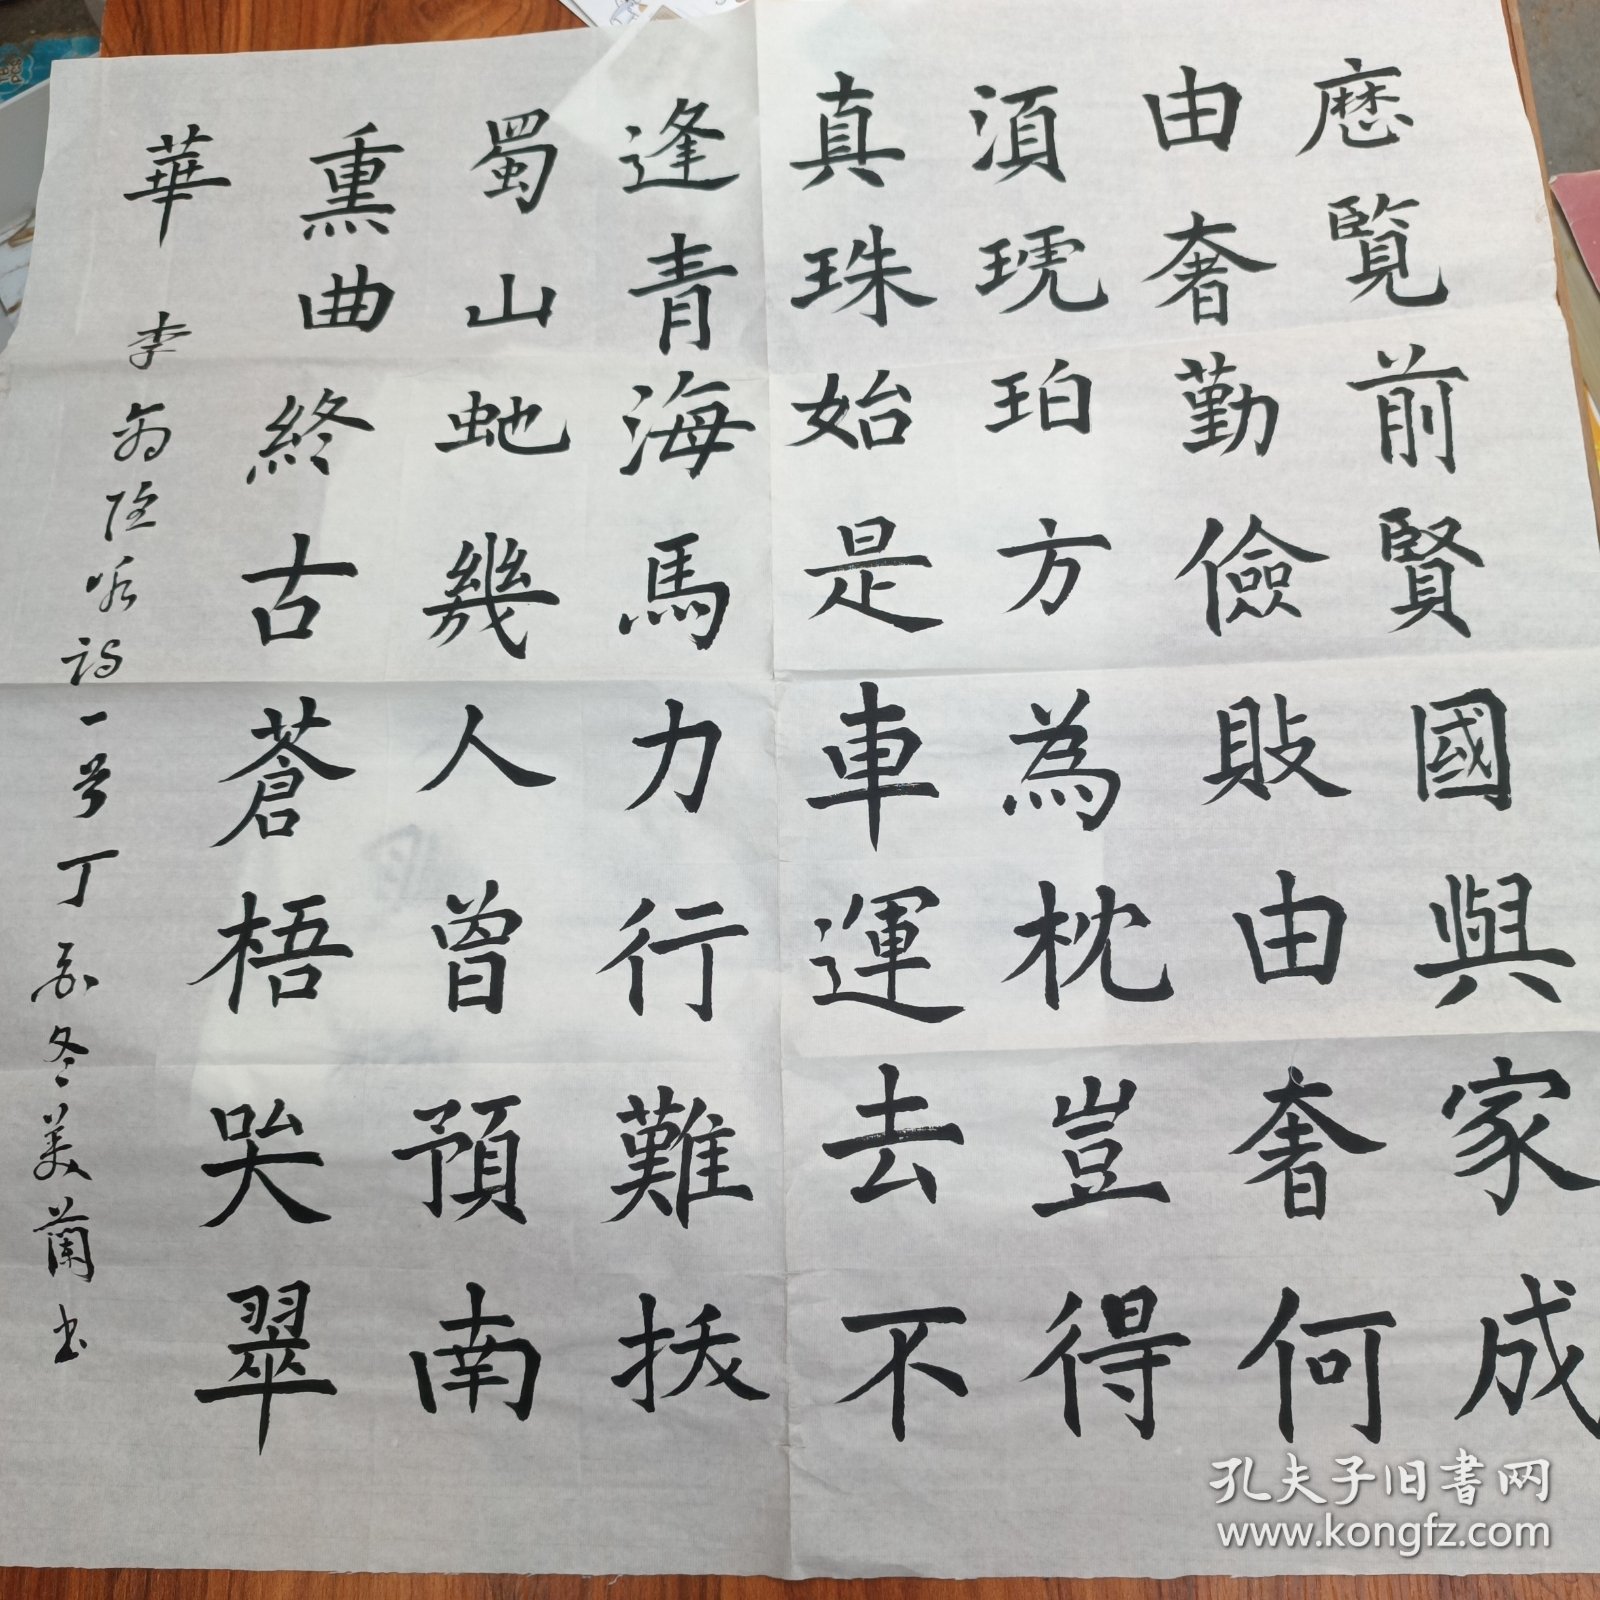 厯覽前賢國與家成
由奢勤儉敗由奢何
湏琥珀方為枕豈得
真珠始是車運去不
逢青海馬力行難拔
蜀山虵幾人曾預南
熏曲終古蒼梧哭翠
華 李商隱咏诗一首丁亥冬美蘭书
孔夫子旧書网
www.kongfz.com